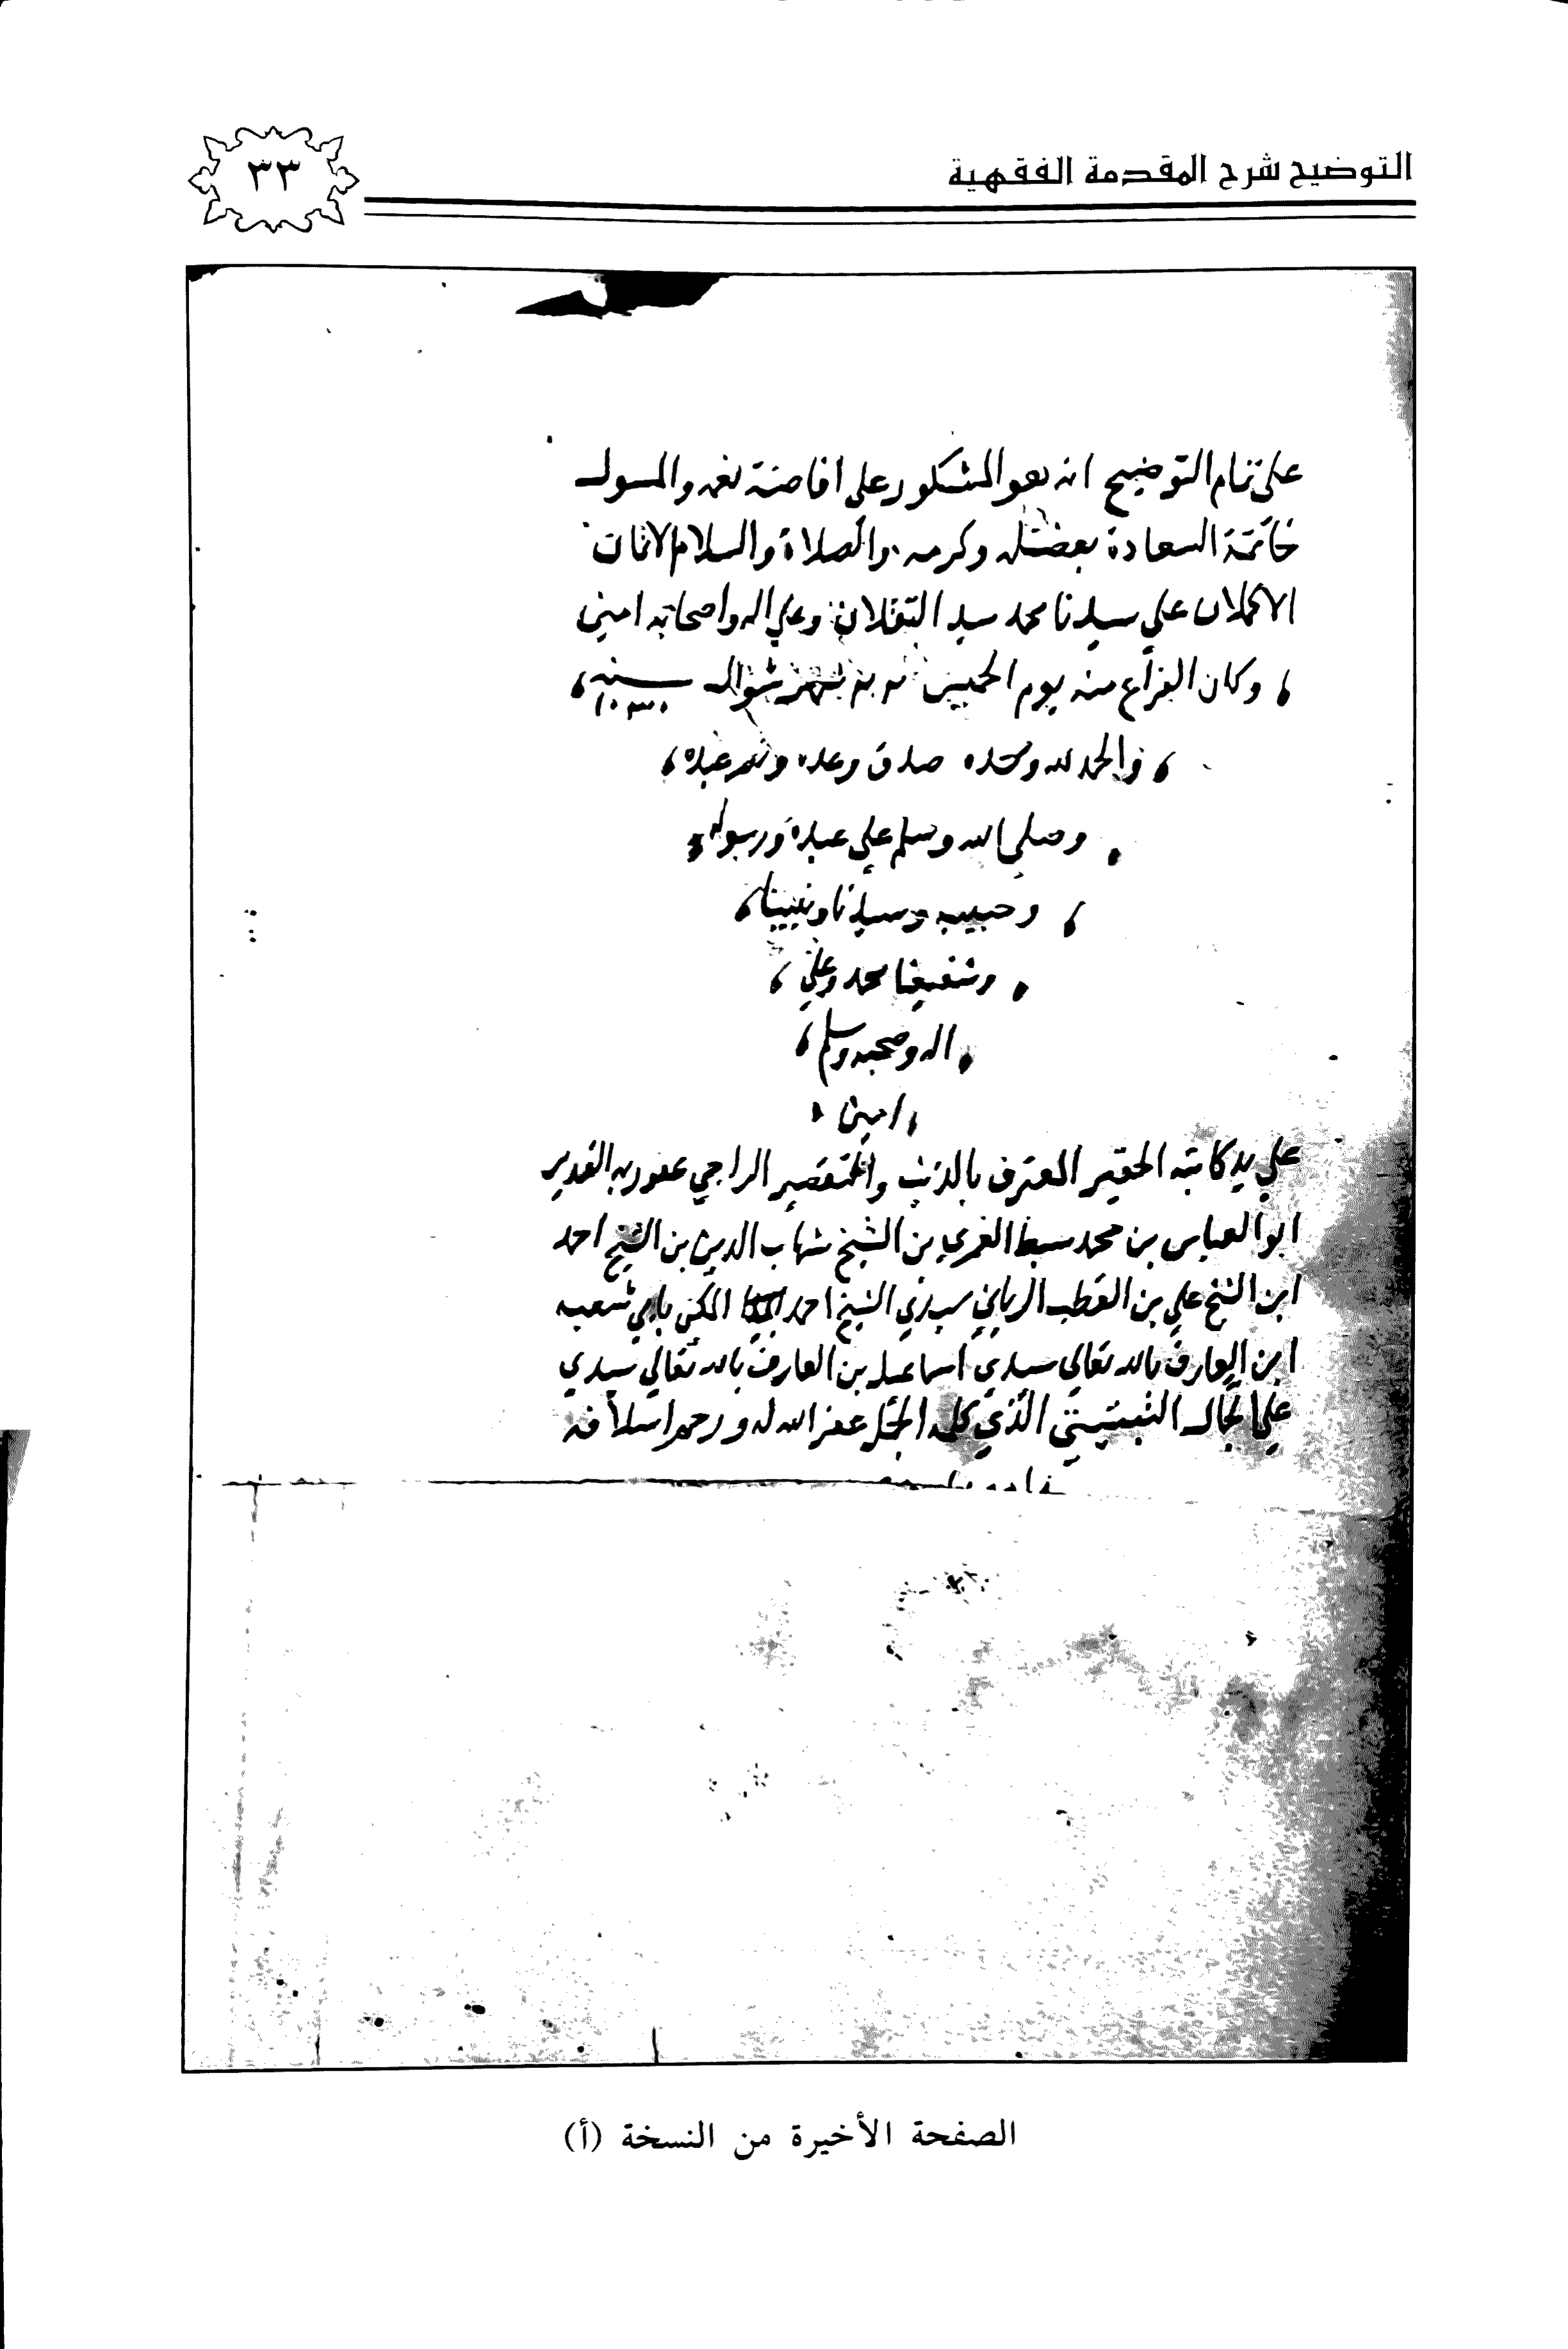 التوضيح شرح المقدمة الفقهية
٣٣
على تمام التوضيح انه هو المشكور على افاضة نعمه والمسول
خاتمة السعادة بفضله وكرمه والصلاة والسلام الاتمان
الاكملان علي سيدنا محمد سيد الثقلان وعلي اله واصحابه امين
وكان الفراغ منه يوم الخميس شهر شوال سنة
والحمد لله وحده صدق وعده ونصر عبده
وصلي الله وسلم علي عبده ورسوله
وحبيبه وسيدنا ونبينا
وشفيعنا محمد وعلي
اله وصحبه وسلم
امين
علي يد كاتبه الحقير المعترف بالذنب والتقصير الراجي عفو ربه القدير
ابو العباس بن محمد سبط الغمري بن الشيخ شهاب الدين بن الشيخ احمد
ابن الشيخ علي بن القطب الرباني سيدي الشيخ احمد المكني بابي شعيب
ابن العارف بالله تعالي سيدي اسماعيل بن العارف بالله تعالي سيدي
علي الذي كلمه غفر الله له ورحم اسلافه
الصفحة الأخيرة من النسخة (أ)